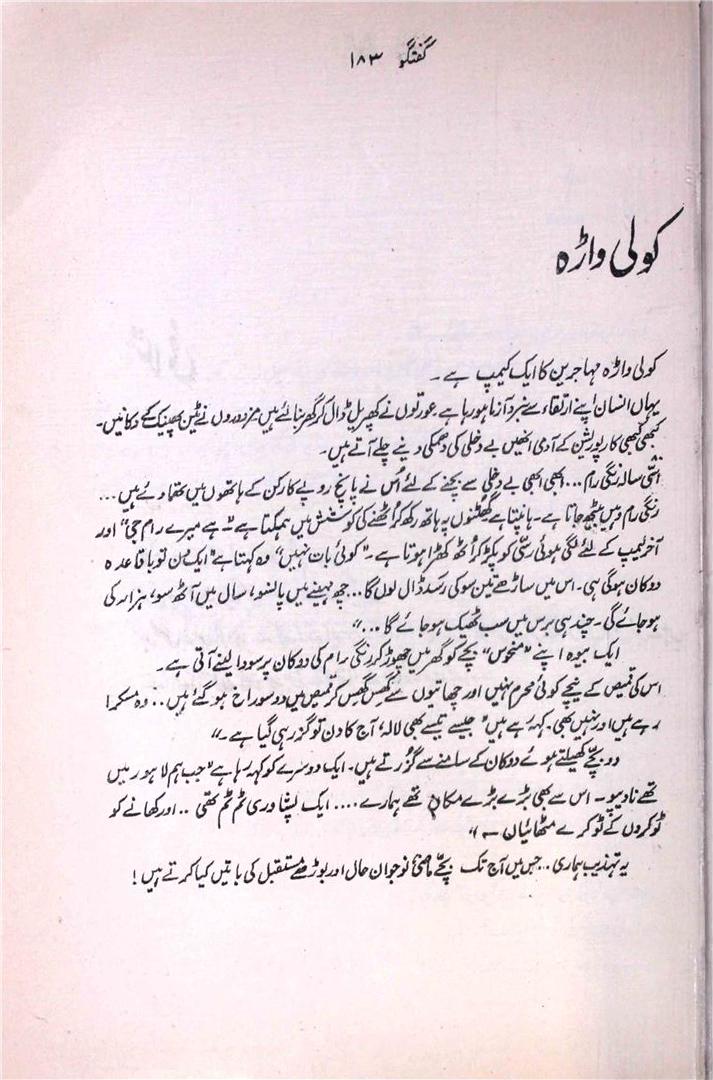 گفتگو ۱۸۳
کولی واڑہ
کولی واڑہ مہاجرین کا ایک کیمپ ہے۔
یہاں انسان اپنے ارتقاء سے نبرد آزما ہو رہا ہے عورتوں نے کھپریل ڈال کر گھر بنائے ہیں مزدوروں نے ٹین پھینک کے دکانیں۔
کبھی کبھی کارپوریشن کے آدمی انھیں بے دخلی کی دھمکی دینے چلے آتے ہیں۔
اسّی سالہ رنگی رام... ابھی ابھی بے دخلی سے بچنے کے لئے اُس نے پانچ روپے کارکن کے ہاتھوں میں تھما دئے ہیں...
رنگی رام وہیں بیٹھ جاتا ہے۔ ہانپتا ہے گھٹنوں پہ ہاتھ رکھ کر اُٹھنے کی کوشش میں ہمکتا ہے "ہے میرے رام جی" اور
آخر لیمپ کے لئے لگی ہوئی رسّی کو پکڑ کر اُٹھ کھڑا ہوتا ہے۔ "کوئی بات نہیں" وہ کہتا ہے "ایک دن تو باقاعدہ
دوکان ہوگی ہی۔ اس میں ساڑھے تین سو کی رسد ڈال لوں گا... چھ مہینے میں پانسو، سال میں آٹھ سو، ہزار کی
ہو جائے گی۔ چند ہی برس میں سب ٹھیک ہو جائے گا...."
ایک بیوہ اپنے "منحوس" بچے کو گھر میں چھوڑ کر رنگی رام کی دوکان پر سودا لینے آتی ہے۔
اس کی قمیص کے نیچے کوئی محرم نہیں اور چھاتیوں سے گھِس گھِس کر قمیص میں دو سوراخ ہو گئے ہیں.. وہ مسکرا
رہے ہیں اور نہیں بھی۔ کہہ رہے ہیں "جیسے تیسے بھی لالہ، آج کا دن تو گزر ہی گیا ہے۔"
دو بچے کھیلتے ہوئے دوکان کے سامنے سے گزرتے ہیں۔ ایک دوسرے کو کہہ رہا ہے "جب ہم لاہور میں
تھے نا دیپو۔ اس سے بھی بڑے بڑے مکان تھے ہمارے.... ایک پشاوری ٹم ٹم تھی .. اور کھانے کو
ٹوکروں کے ٹوکرے مٹھائیاں ۔"
یہ تہذیب ہماری.. جس میں آج تک بچے ماضی نوجوان حال اور بوڑھے مستقبل کی باتیں کیا کرتے ہیں!